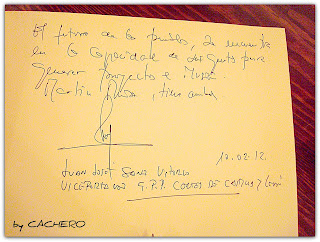 El futuro de los pueblos, se encuentra
en la capacidad de sus gentes para
generar Proyecto e
tiene ambas
Juan José Sanz Vitorio
VICEPORTAVOZ G.P.P. CORTES DE CASTILLA Y León
17.02.12.
by CACHERO